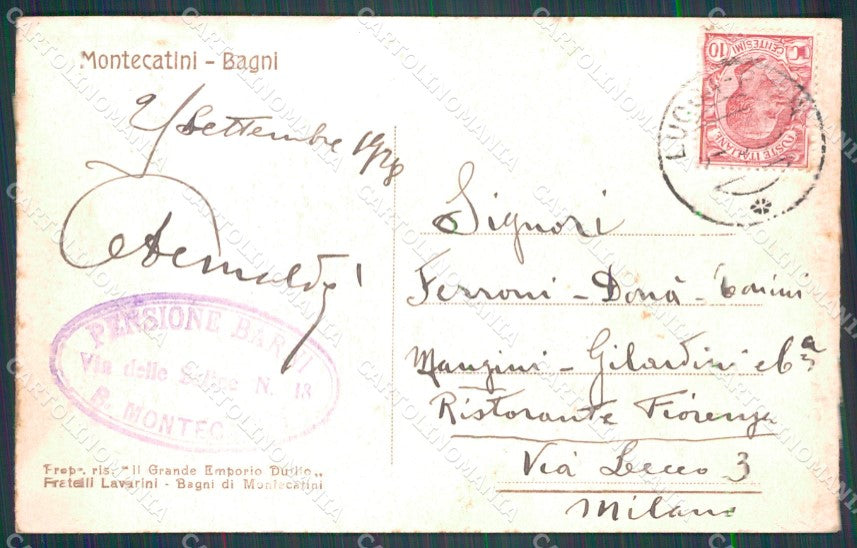 Montecatini - Bagni
2/ Settembre 1928
PENSIONE BARNI
Via delle Saline N. 13
B. MONTEC
Prop. ris. "Il Grande Emporio Duilio,,
Fratelli Lavarini - Bagni di Montecatini
10 CENTESIMI
POSTE ITALIANE
LUCCA
Signori
Ferroni - Donà -
Mangini - Gilardini e
Ristorante Fiorenza
Via Lecco 3
Milano
CARTOLINOMANIA